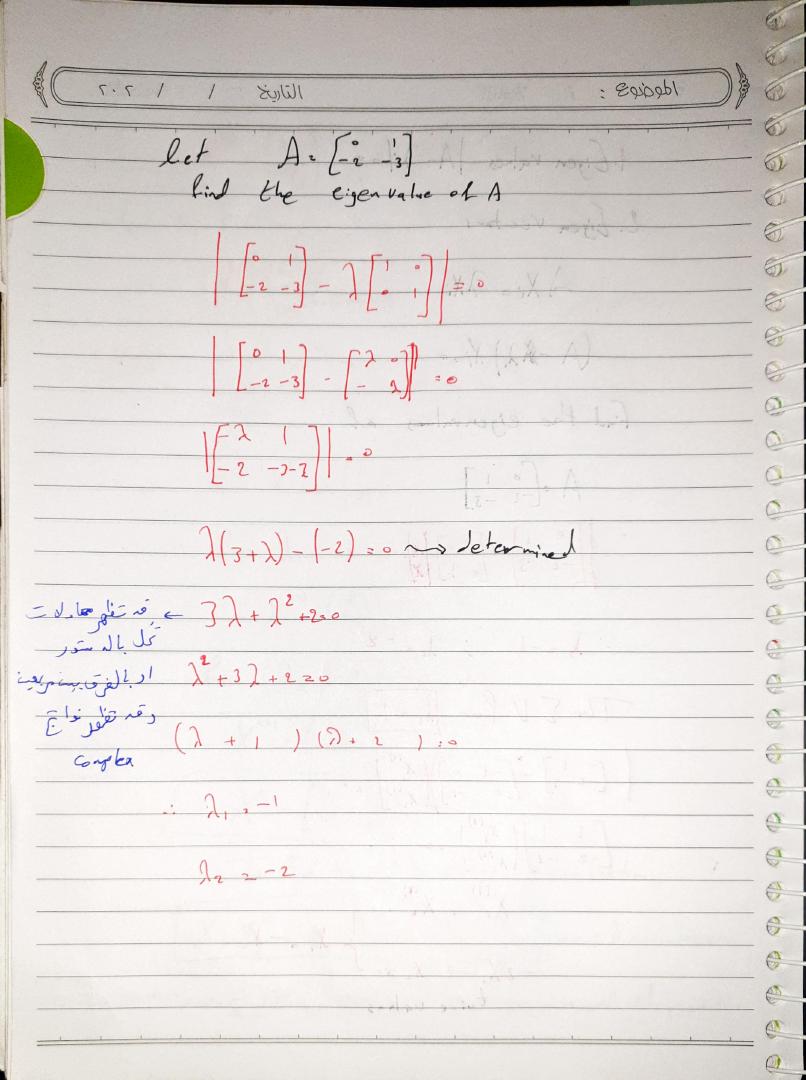 الموضوع : التاريخ / / ٢٠٢
let A = [0 1; -2 -3]
find the eigenvalue of A
| [0 1; -2 -3] - λ [1 0; 0 1] | = 0
| [0 1; -2 -3] - [λ 0; - λ] | = 0
| [-λ 1; -2 -3-λ] | = 0
λ(3+λ) - (-2) = 0 ⇝ determined
3λ + λ² + 2 = 0
← قد تظهر معادلات
تحل بالدستور
λ² + 3λ + 2 = 0
او بالفرق بين مربعين
وقد تظهر نواتج
complex
(λ + 1 ) (λ + 2 ) = 0
∴ λ₁ = -1
λ₂ = -2